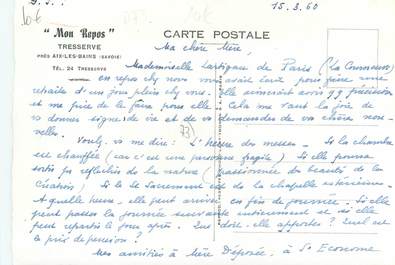 15.3.60
"Mon Repos"
TRESSERVE
PRÈS AIX-LES-BAINS (SAVOIE)
TÉL. 24 TRESSERVE
CARTE POSTALE
Ma chère Mère,
Mademoiselle Lartigau de Paris (La Courneuve)
en repos chez nous pour faire une
retraite d'un jour pleins chez vous. Elle aimerait avoir qq précision
et me prie de le faire pour elle. Cela me vaut la joie de
vs donner signe de vie et de vs demander de vos chères nou-
velles.
73
Voulez vs me dire : L'heure des messes - Si la chambre
est chauffée (car c'est une personne fragile) Si elle pourra
sortir ds la nature (passionnée des beautés de la
Création) Si le St Sacrement est ds la chapelle extérieure.
A quelle heure elle peut arriver en fin de journée. Si elle
peut passer la journée suivante entièrement et si elle
peut repartir le jour après. Que doit elle apporter ? Quel est
le prix de pension ?
Mes amitiés à Mère Déposée, à Sr Econome